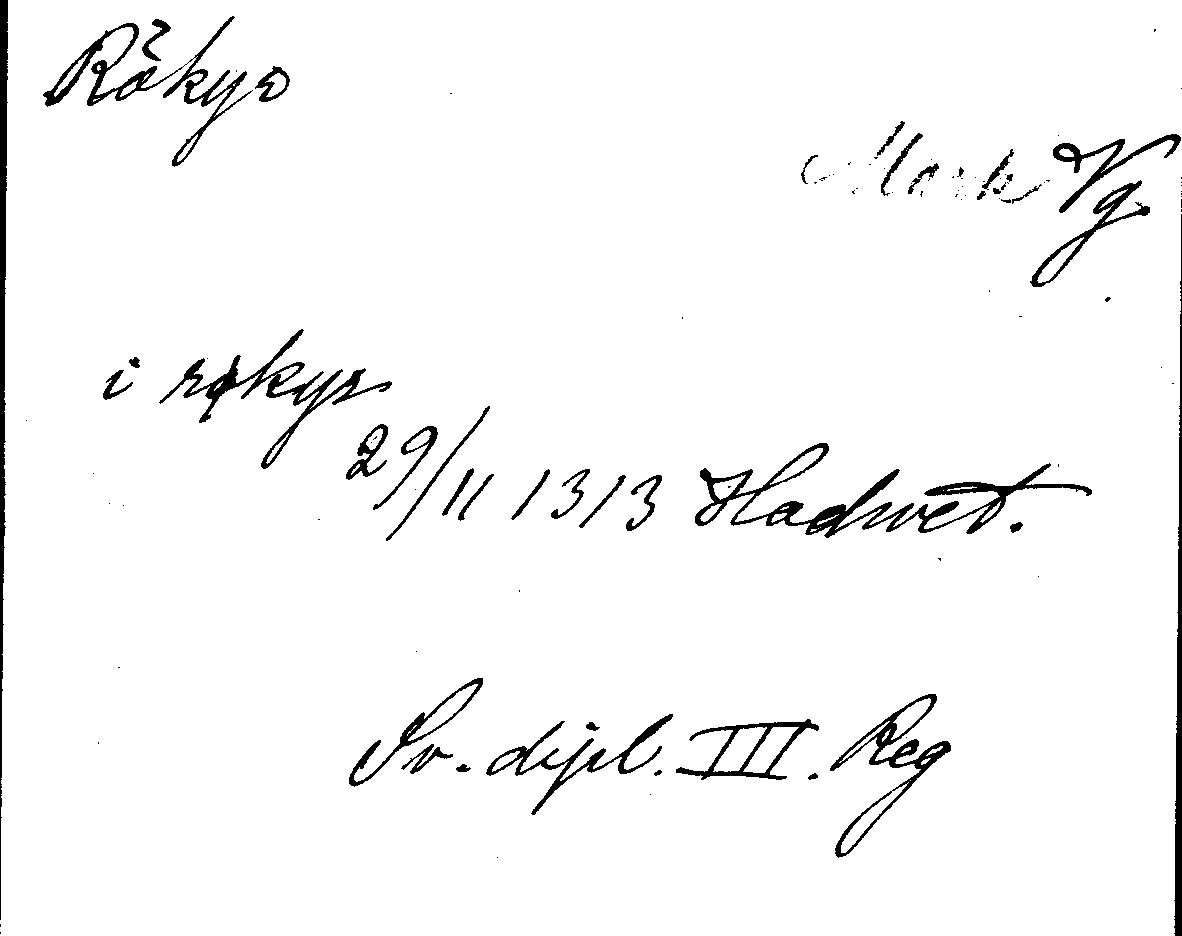 Rökyo
Mark Vg
i røkyr
29/11 1313 Hadwet.
Sv. dipl. III. Reg